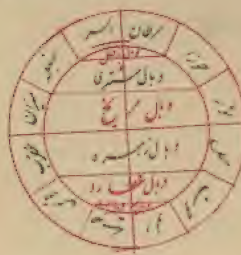 سرطان
اسد
سنبله
میزان
عقرب
قوس
جدی
دلو
حوت
حمل
ثور
جوزا
وبال زحل
وبال مشتری
وبال مریخ
وبال زهره
وبال عطارد